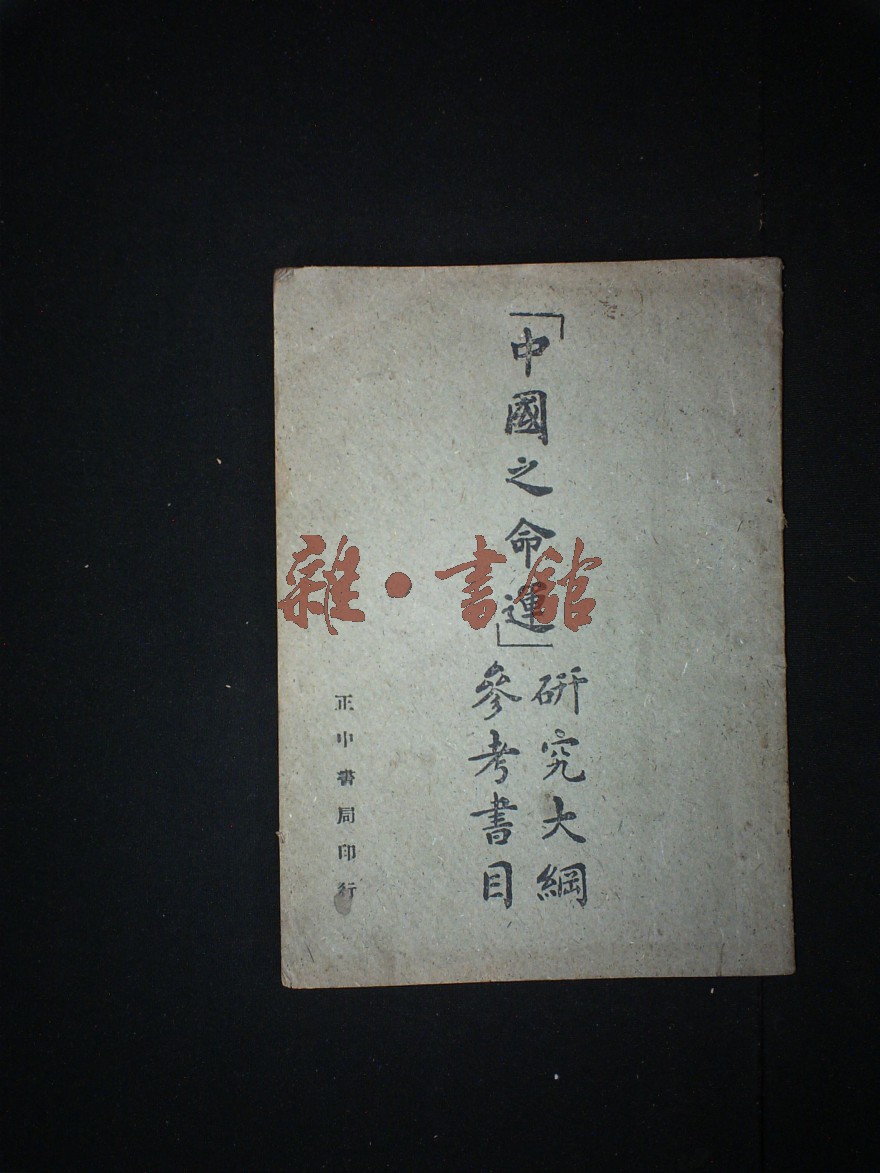 「中國之命運」
研究大綱
參考書目
正中書局印行
雜·書館